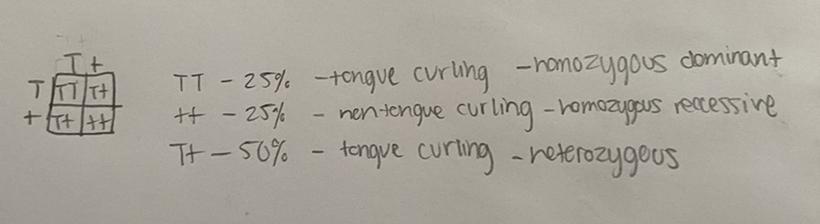 T t
T TT Tt
t Tt tt
TT - 25% - tongue curling - homozygous dominant
tt - 25% - non-tongue curling - homozygous recessive
Tt - 50% - tongue curling - heterozygous